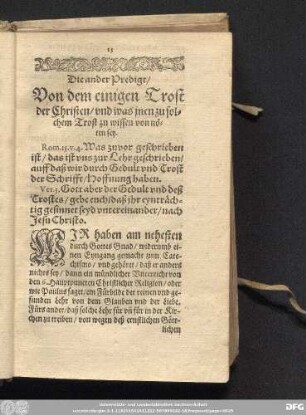 15
Die ander Predigt/
Von dem einigen Trost
der Christen/ vnd was jnen zu sol-
chem Trost zu wissen von nö-
ten sey.
Rom.15.v.4. Was zuvor geschrieben
ist/ das ist vns zur Lehr geschrieben/
auff daß wir durch Gedult vnd Trost
der Schrifft/ Hoffnung haben.
Ver.5. Gott aber der Gedult vnd deß
Trostes/ gebe euch/ daß jhr eynträch-
tig gesinnet seyd vntereinander/ nach
Jesu Christo.
WIR haben am nehesten
durch Gottes Gnad/ widerumb ei-
nen Eyngang gemacht zum Cate-
chismo/ vnd gehöret/ daß er anders
nichts sey/ dann ein mündlicher Vnterricht von
den 6. Hauptpuncten Christlicher Religion/ oder
wie Paulus saget/ ein Fürbilde der reinen vnd ge-
sunden Lehr von dem Glauben vnd der Liebe.
Fürs ander/ daß solche Lehr für vnd für in der Kir-
chen zu treiben/ von wegen deß ernstlichen Gött-
lichen